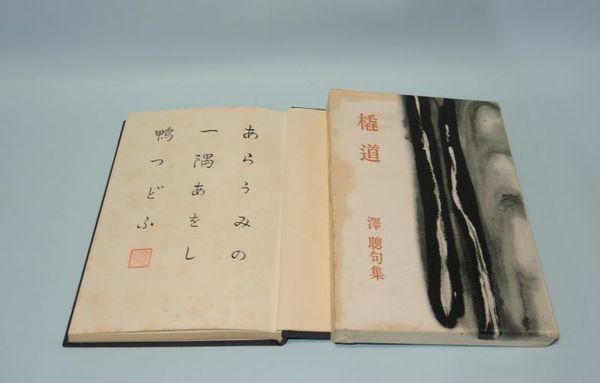 あらうみの
一隅あをし
鴨つどふ
橇道
澤聰句集